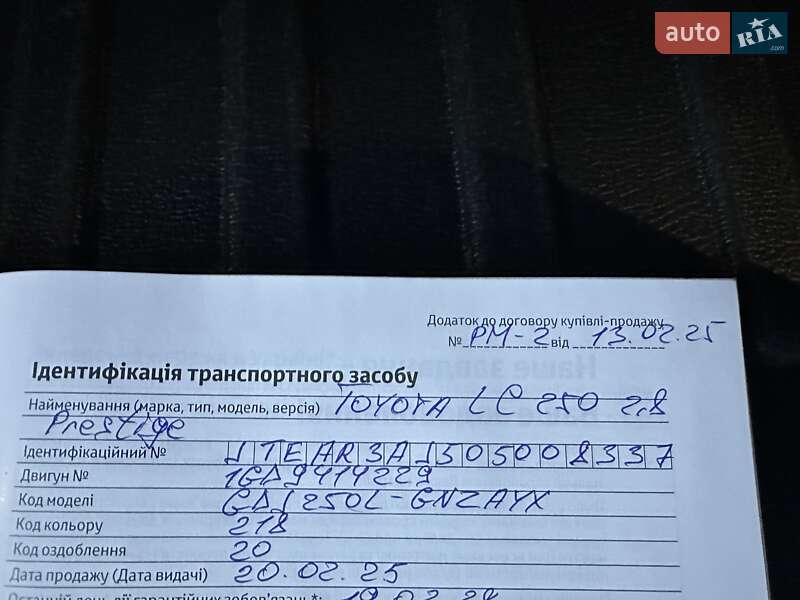 auto RIA.com
Додаток до договору купівлі-продажу
№ РМ-2 від 13.02.25
Ідентифікація транспортного засобу
Найменування (марка, тип, модель, версія) TOYOTA LC 250 2,8
Prestige
Ідентифікаційний № JTEAR3AJ505008337
Двигун № 1GD9414229
Код моделі GDJ250L-GNZAYX
Код кольору 218
Код оздоблення 20
Дата продажу (Дата видачі) 20.02.25